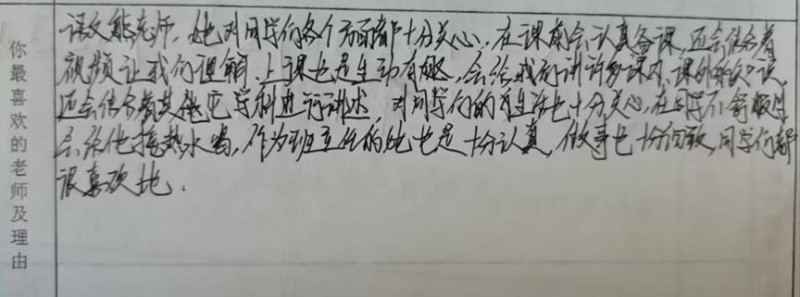 你最喜欢的老师及理由
语文熊老师，她对同学们各个方面都十分关心，在课前会认真备课，还会结合着
视频让我们理解，上课也是生动有趣，会给我们讲许多课内、课外知识，
还会结合着其他学科进行讲术，对同学们的生活也十分关心，在同学不舒服时
会给他接热水喝，作为班主任的她也是十分认真，做事也十分细致，同学们都
很喜欢她．